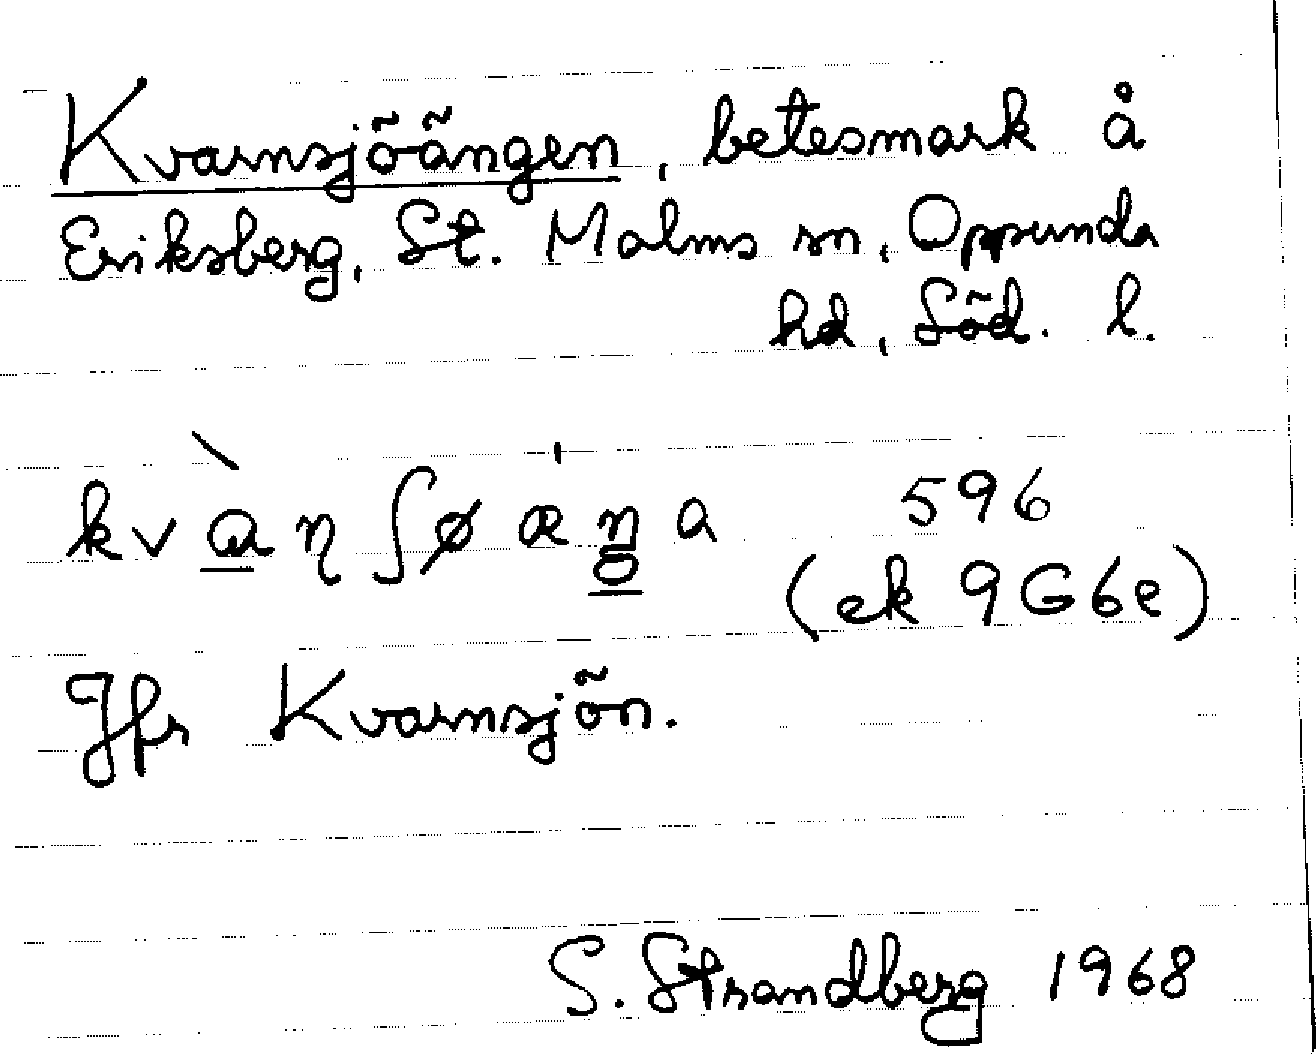 Kvarnsjöängen, betesmark å
Eriksberg, St. Malms sn, Oppunda
hd, Söd. l.
kvàɳʃøæŋa 596
(ek 9G6e)
Jfr Kvarnsjön.
S. Strandberg 1968